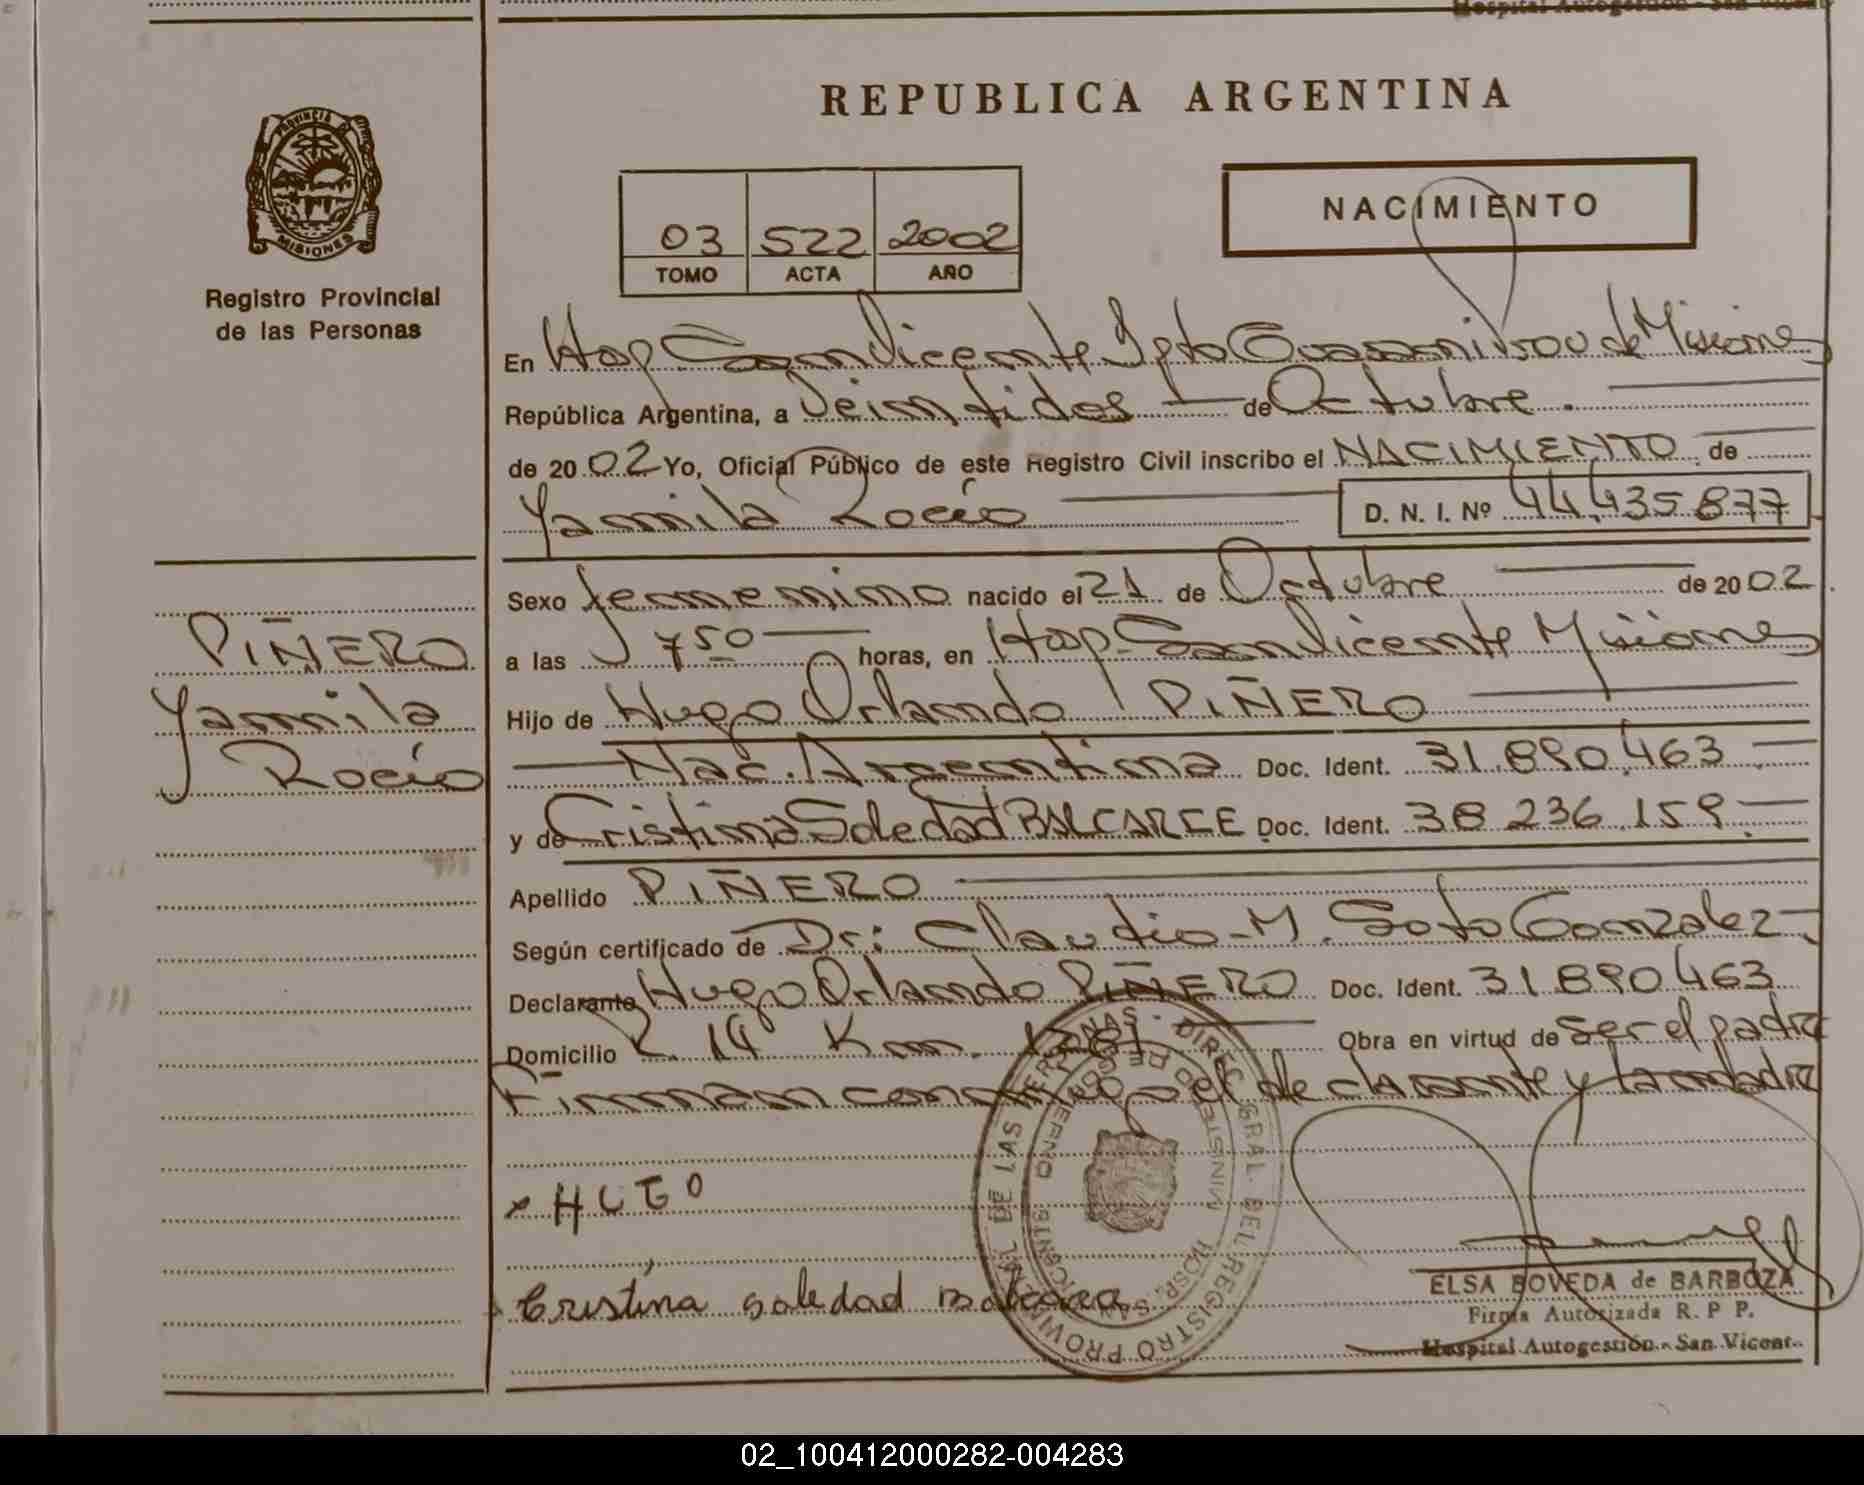 Hospital Autogestión - San Vicent
REPUBLICA ARGENTINA
PROVINCIA DE
MISIONES
Registro Provincial
de las Personas
03 522 2002
TOMO ACTA AÑO
NACIMIENTO
En Hosp San Vicente Dpto Guarani Prov de Misiones
República Argentina, a Veintidos de Octubre.
de 2002 Yo, Oficial Público de este Registro Civil inscribo el NACIMIENTO de
Yamila Rocío D. N. I. Nº 44.435 877
Sexo femenino nacido el 21 de Octubre de 2002
a las 7 50 horas, en Hosp. San Vicente Misiones
Hijo de Hugo Orlando PIÑERO
Nac. Argentina Doc. Ident. 31.890.463
y de Cristina Soledad BALCARCE Doc. Ident. 38 236.159
Apellido PIÑERO
Según certificado de Dr: Claudio M. Soto Gonzalez
Declarante Hugo Orlando PIÑERO Doc. Ident. 31.890.463
Domicilio R. 14 Km. Obra en virtud de ser el padre
Firman conmigo el declarante y la madre
PIÑERO
Yamila
Rocío
x HUGO
Cristina Soledad
REGISTRO PROVINCIAL DE LAS PERSONAS - DIREC. GRAL DEL
MINISTERIO DE GOBIERNO
HOSP. SAN VICENTE
ELSA BOVEDA de BARBOZA
Firma Autorizada R. P P.
Hospital Autogestión - San Vicent
02_100412000282-004283